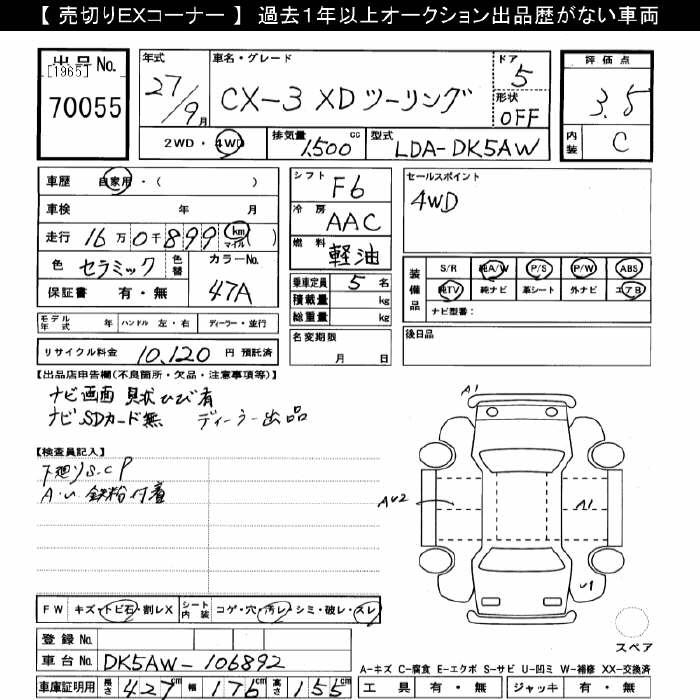 【 売切りEXコーナー 】 過去1年以上オークション出品歴がない車両
出品No.
[1965]
70055
年式
27/9月
車名・グレード
CX-3 XDツーリング
ドア
5
形状
OFF
評価点
3.5
内装
C
2WD・4WD
排気量
1,500 cc
型式
LDA-DK5AW
車歴 自家用・( )
車検 年 月
走行 16万0千899 km マイル ( )
色 セラミック 色替
カラーNo.
47A
保証書 有・無
シフト
F6
冷房
AAC
燃料
軽油
乗車定員 5 名
積載量 kg
総重量 kg
セールスポイント
4WD
装備品
S/R 純A/W P/S P/W ABS
純TV 純ナビ 革シート 外ナビ エアB
ナビ型番:
モデル年式 年 ハンドル 左・右 ディーラー・並行
リサイクル料金 10,120 円 預託済
名変期限
月 日
後日品
【出品店申告欄(不良箇所・欠品・注意事項等)】
ナビ画面 貝状ひび有
ナビSDカード無 ディーラー出品
【検査員記入】
下廻りS.C P
A・U 鉄粉付着
A1
AU2
A1
U1
FW キズ・トビ石・割レX
シート内装 コゲ・穴・汚レ・シミ・破レ・スレ
登録No.
車台No. DK5AW-106892
車庫証明用 長さ 427cm 幅 176cm 高さ 155cm
スペア
A-キズ C-腐食 E-エクボ S-サビ U-凹ミ W-補修 XX-交換済
工具 有・無 ジャッキ 有・無